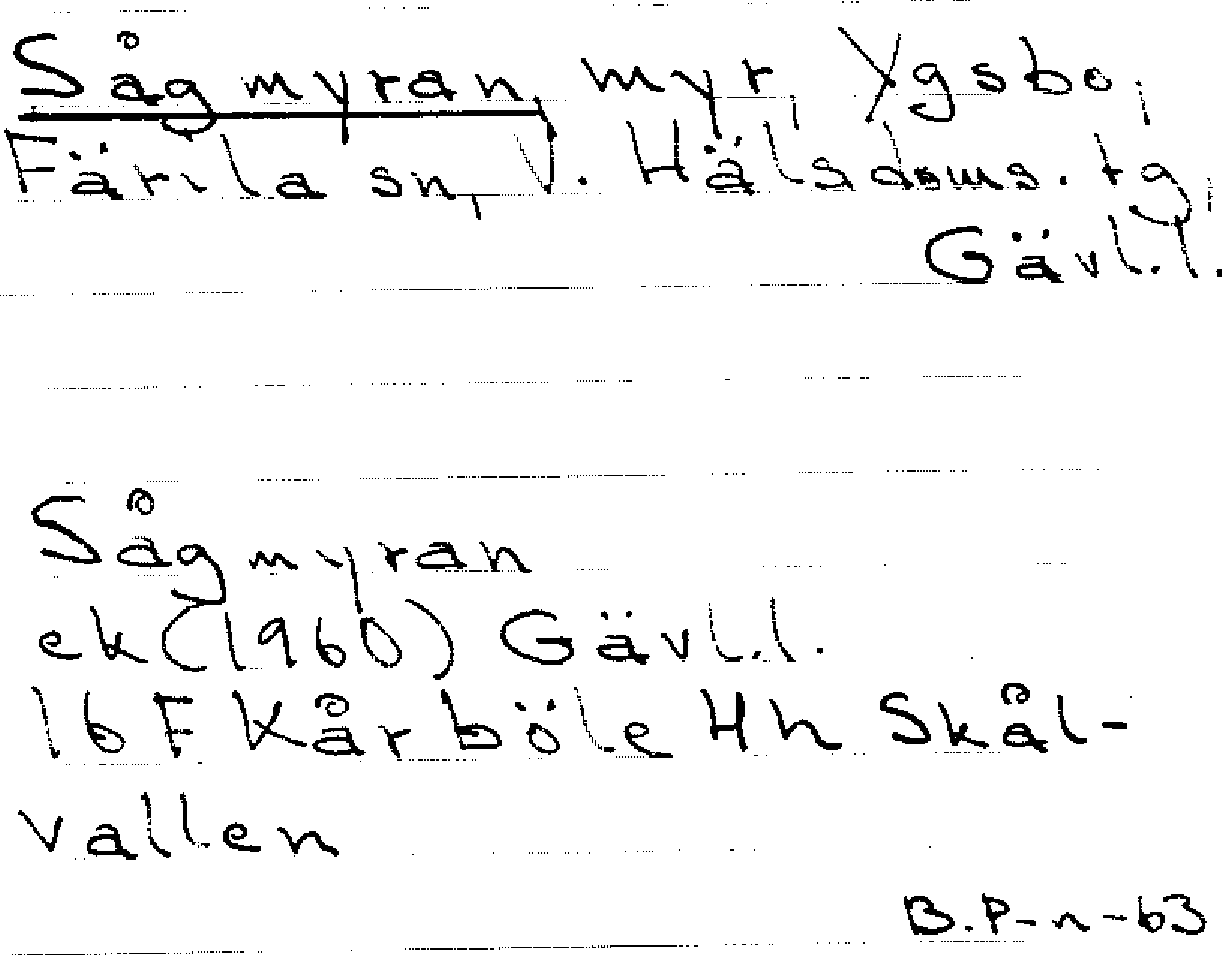 Sågmyran, myr, Ygsbo,
Färila sn, V. Hälsdoms. tg,
Gävl.l.
Sågmyran
ek(1960) Gävl.l.
16F Kårböle Hh Skål-
vallen
B.P-n-63